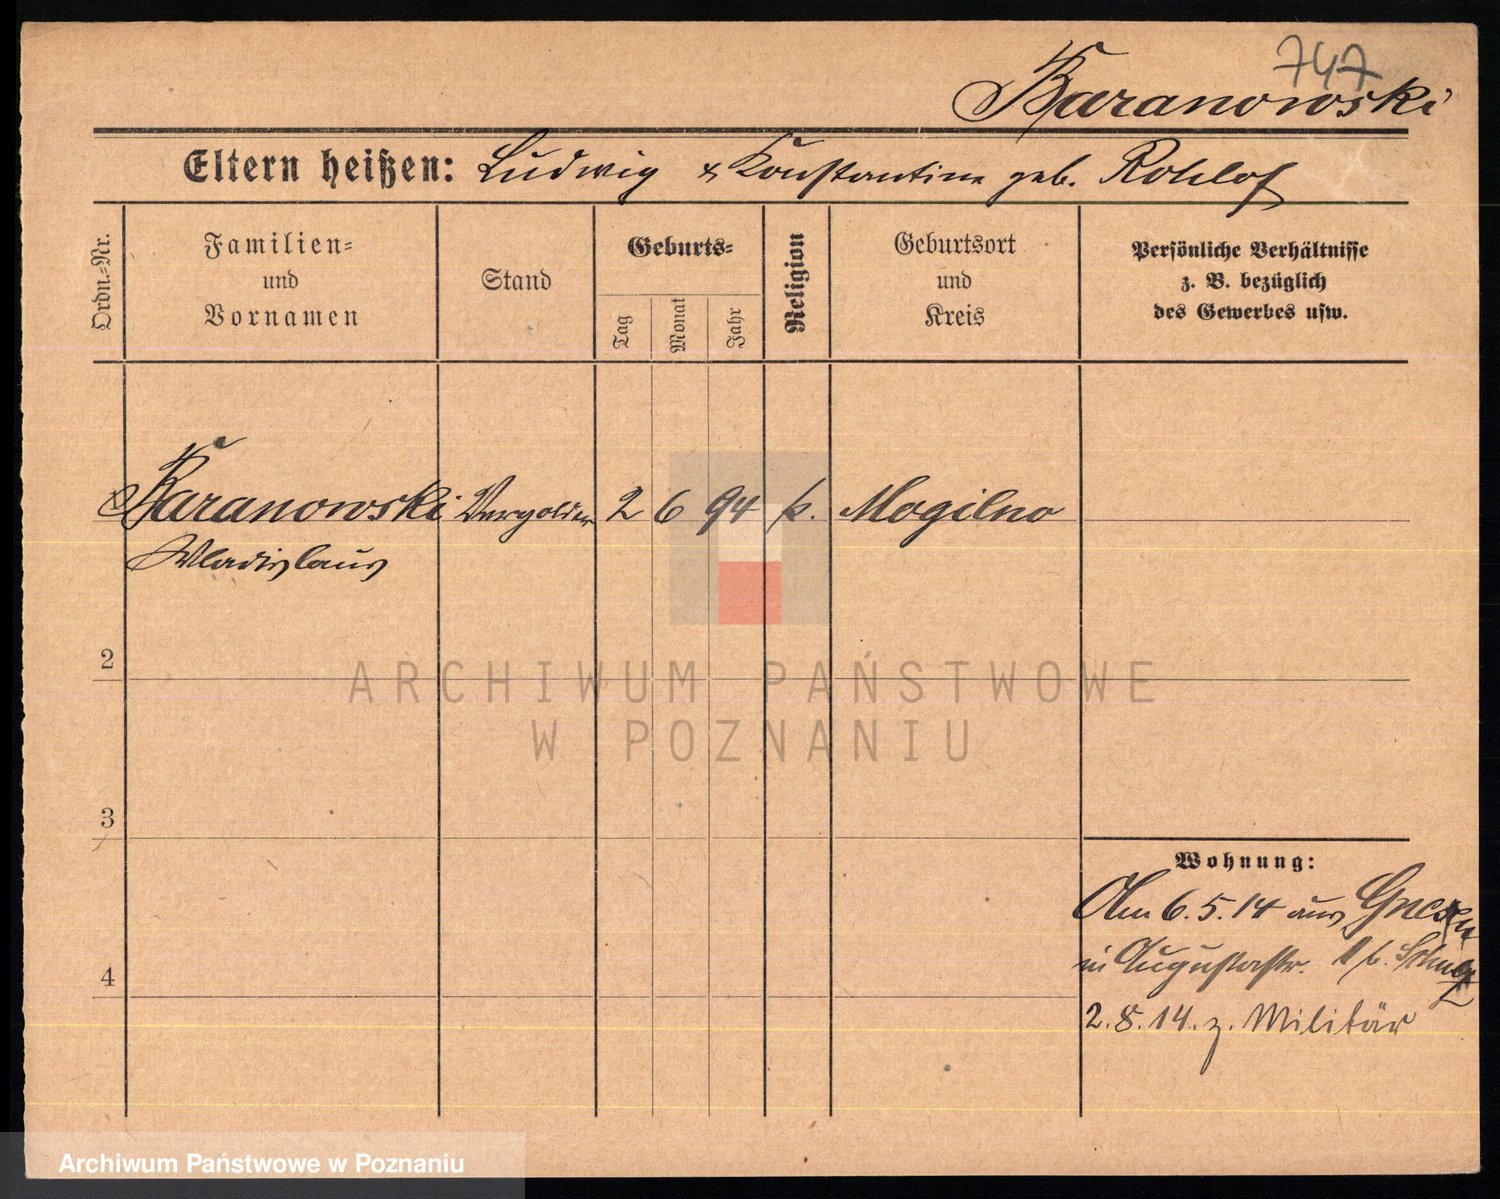 747
Baranowski
Eltern heißen: Ludwig & Konstantine geb. Rohlof
Ordn.-Nr.
Familien-
und
Vornamen
Stand
Geburts-
Tag
Monat
Jahr
Religion
Geburtsort
und
Kreis
Persönliche Verhältnisse
z. B. bezüglich
des Gewerbes usw.
Baranowski Vergolder 2 6 94 k. Mogilno
Wladislaus
2
3
4
Wohnung:
Am 6.5.14 aus Gnesen
in Augustastr. 1 b. Schulz
2.8.14. z. Militär
ARCHIWUM PAŃSTWOWE
W POZNANIU
Archiwum Państwowe w Poznaniu